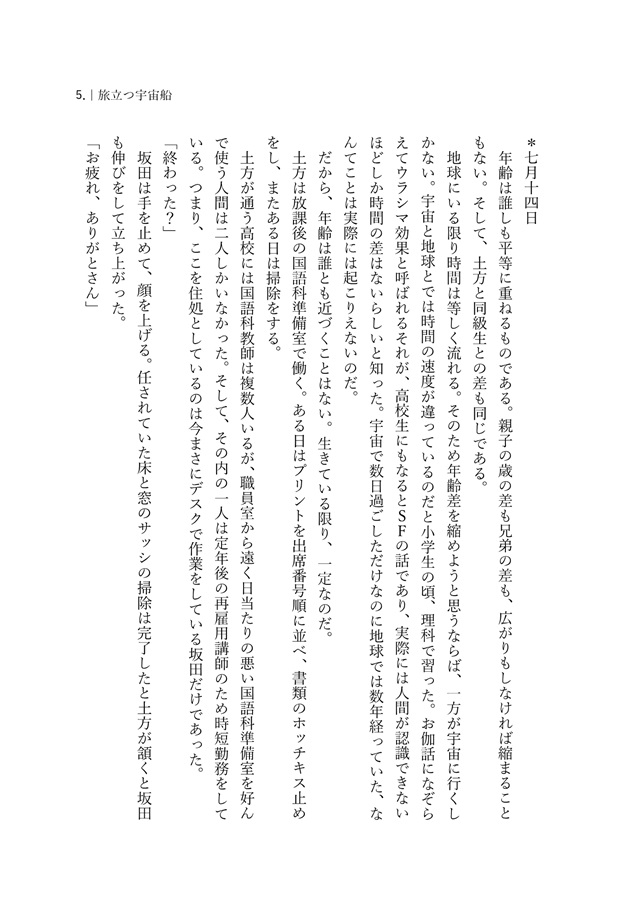 5. | 旅立つ宇宙船
＊七月十四日
　年齢は誰しも平等に重ねるものである。親子の歳の差も兄弟の差も、広がりもしなければ縮まること
もない。そして、土方と同級生との差も同じである。
　地球にいる限り時間は等しく流れる。そのため年齢差を縮めようと思うならば、一方が宇宙に行くし
かない。宇宙と地球とでは時間の速度が違っているのだと小学生の頃、理科で習った。お伽話になぞら
えてウラシマ効果と呼ばれるそれが、高校生にもなるとＳＦの話であり、実際には人間が認識できない
ほどしか時間の差はないらしいと知った。宇宙で数日過ごしただけなのに地球では数年経っていた、な
んてことは実際には起こりえないのだ。
　だから、年齢は誰とも近づくことはない。生きている限り、一定なのだ。
　土方は放課後の国語科準備室で働く。ある日はプリントを出席番号順に並べ、書類のホッチキス止め
をし、またある日は掃除をする。
　土方が通う高校には国語科教師は複数人いるが、職員室から遠く日当たりの悪い国語科準備室を好ん
で使う人間は二人しかいなかった。そして、その内の一人は定年後の再雇用講師のため時短勤務をして
いる。つまり、ここを住処としているのは今まさにデスクで作業をしている坂田だけであった。
「終わった？」
　坂田は手を止めて、顔を上げる。任されていた床と窓のサッシの掃除は完了したと土方が頷くと坂田
も伸びをして立ち上がった。
「お疲れ、ありがとさん」